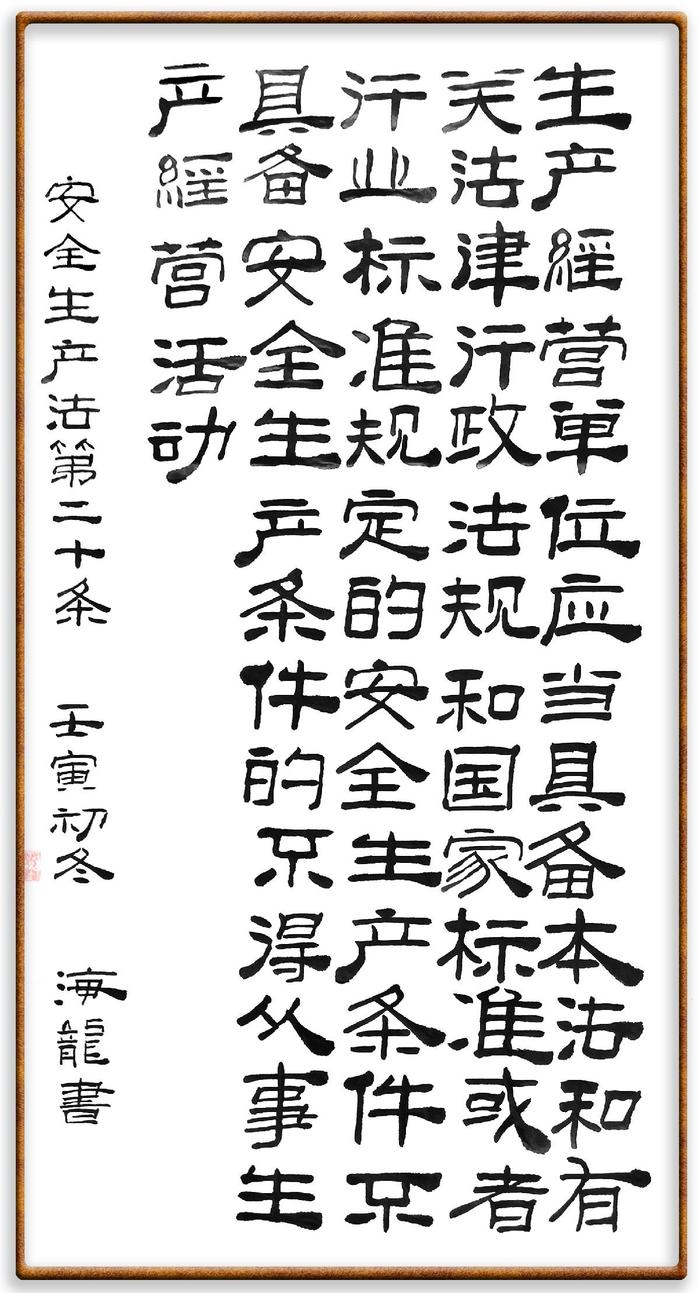 生产經营单位应当具备本法和有
关法律行政法规和国家标准或者
行业标准规定的安全生产条件不
具备安全生产条件的不得从事生
产經营活动
安全生产法第二十条 壬寅初冬 海龍書